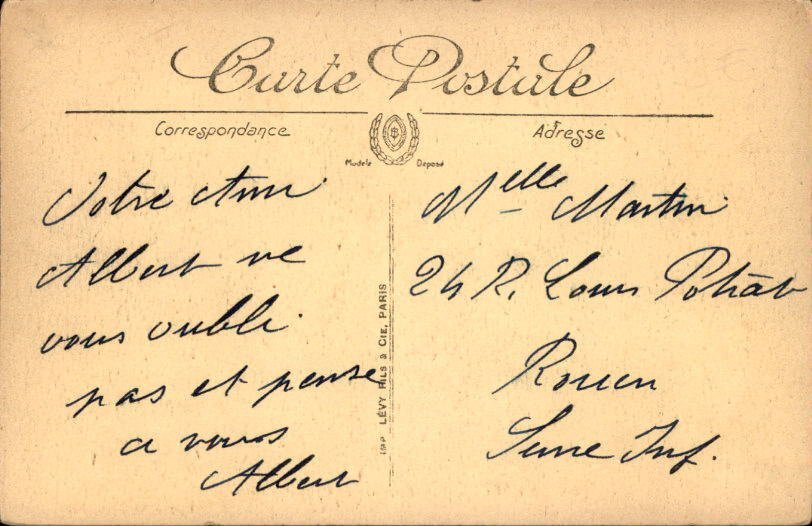 Carte Postale
Correspondance
Adresse
Modèle Déposé
Votre Ami
Albert ne
vous oubli
pas et pense
a vous
Albert
IMP LÉVY FILS & CIE, PARIS
Melle Martin
24 R. Louis
Rouen
Seine Inf.